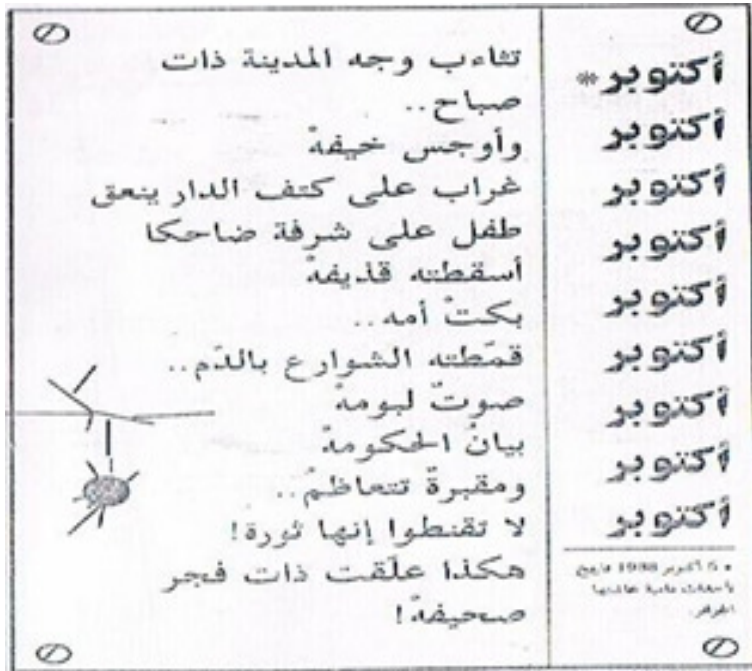 أكتوبر*
أكتوبر
أكتوبر
أكتوبر
أكتوبر
أكتوبر
أكتوبر
أكتوبر
أكتوبر
* 5 أكتوبر 1988 تاريخ
دامية عاشتها
الجزائر.
تثاءب وجه المدينة ذات
صباح..
وأوجس خيفهْ
غراب على كتف الدار ينعق
طفل على شرفة ضاحكا
أسقطته قذيفهْ
بكتْ أمه..
قمّطته الشوارع بالدّم..
صوتٌ لبومهْ
بيانُ الحكومهْ
ومقبرةٌ تتعاظمُ..
لا تقنطوا إنها ثورة!
هكذا علّقت ذات فجر
صحيفهْ!